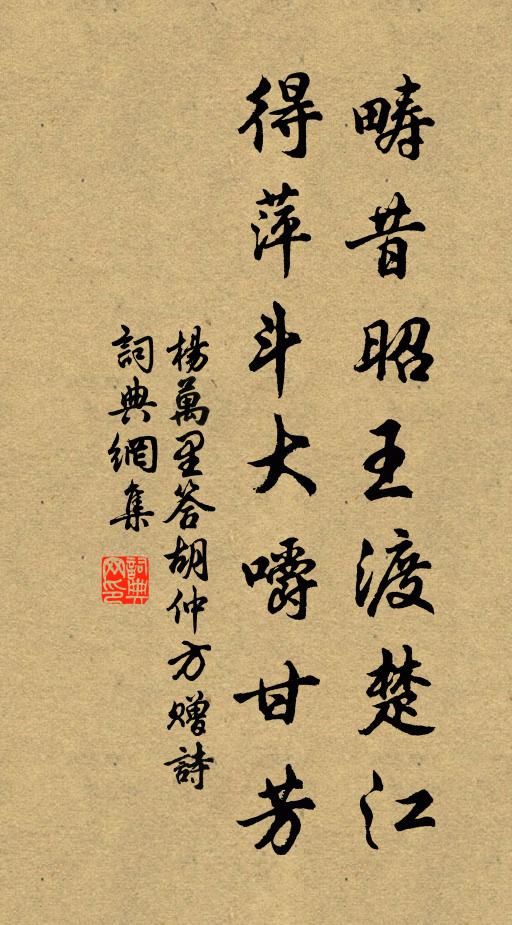 疇昔昭王渡楚江
得萍斗大嚼甘芳
楊萬里答胡仲方贈詩
詞典網集
詞典
网印